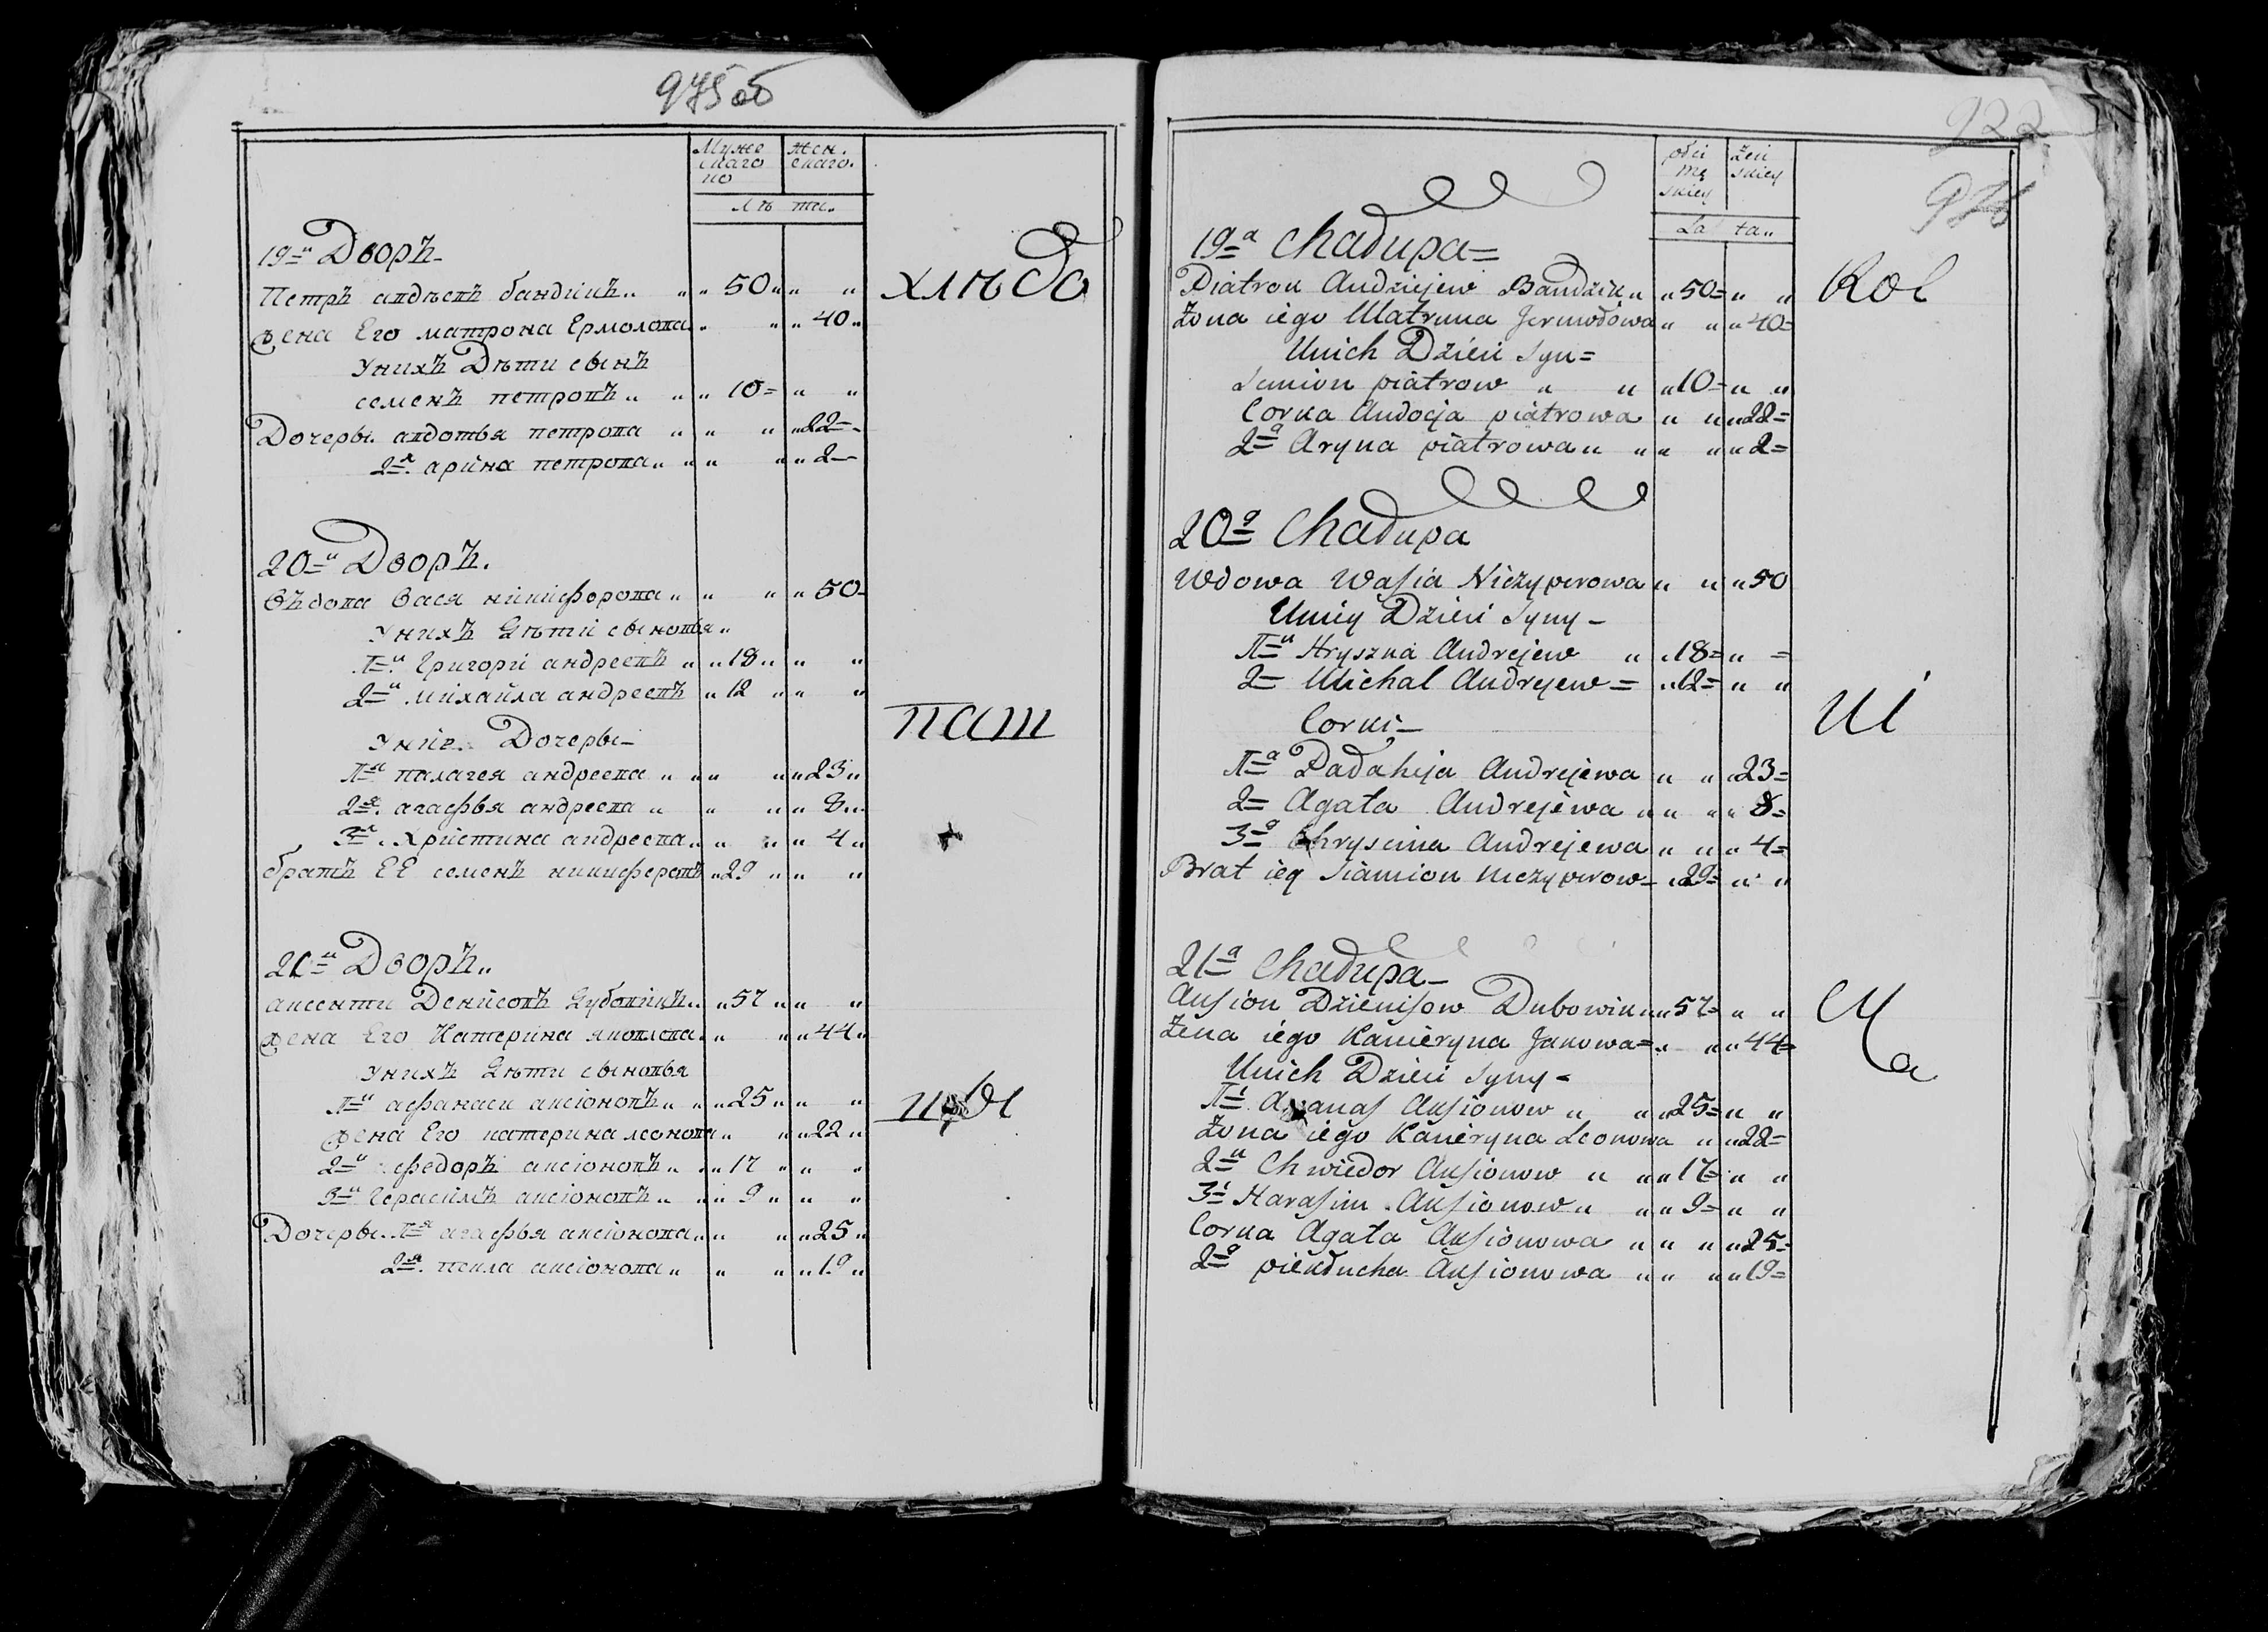 975 об
Муже
скаго
по
Жен.
скаго.
лѣ та.
19=й Дворъ-
Петръ андѣевъ бандикъ „ „ „ 50 „ „ „
жена Его матрона Ермолова „ „ „ 40 „
хлѣбо
Унихъ Дѣти сынъ
семенъ петровъ „ „ „ 10= „ „
Дочеры авдотья петрова „ „ „ „ 22-
2=я арина петрова „ „ „ „ „ 2-
20=й Дворъ.
вѣдова Вася никифорова „ „ „ „ 50-
Унихъ Дѣти сыновья „
П=й Григорй андреевъ „ „ 18 „ „ „
2=й михайла андреевъ „ 12 „ „ „
паш
Уние. Дочеры-
П=я палагея андреева „ „ „ „ „ 23 „
2=я агафья андреева „ „ „ „ 8 „
3=я Христина андреева „ „ „ „ 4 „
братъ ЕЕ семенъ никиферовъ „ 29 „ „ „
21=й Дворъ „
аксенти Денисовъ Дубовикъ „ „ 57 „ „ „
жена Его Катерина яковлева „ „ „ „ 44 „
Унихъ Дѣти сыновья
П=й афанаси аксіоновъ „ „ „ 25 „ „ „
жена Его катерина леонова „ „ „ 22 „
2=й федоръ аксіоновъ „ „ „ 17 „ „ „
3=й Герасимъ аксіоновъ „ „ „ 9 „ „ „
Дочеры П=я агафья аксіонова „ „ „ „ 25 „
2=я текла аксіонова „ „ „ „ 19 „
922
976
płci
mę
skiey
żeń
skiey
La ta „
19=a Chałupa=
Piatrou Andziejew Bandzik „ „ 50= „ „
Rol
Żona iego Matruna Jermołowa „ „ „ 40=
Unich Dzieci Syn=
Simion piatrow „ „ „ 10= „ „
Corka Audocja piatrowa „ „ „ 22=
2=a Aryna piatrowa „ „ „ „ „ 2=
20=a Chałupa
Wdowa Wasia Niczyperowa „ „ „ 50
Uniey Dzieci Syny-
П=й Hryszka Andrejew „ „ 18= „ =
2= Michal Andrejew = „ 12= „ „
Corki-
ni
П=a Pałahija Andrejewa „ „ „ 23=
2= Agata Andrejewa „ „ „ „ 8=
3=a Chryscina Andrejewa „ „ „ 4=
Brat ieg Siamion Niczyperow- „ 29= „ „
21=a Chałupa-
Ausion Dzienisow Dubowik „ „ 57= „ „
Żena iego Kacieryna Jakowa= „ „ „ 44=
Unich Dzieci Syny-
П=i Apanas Ausionow „ „ „ 25= „ „
Żona iego Kacieryna Leonowa „ „ 22=
2=й Chwiedor Ausionow „ „ „ 17= „ „
3=i Harasim Ausionow „ „ „ 9= „ „
Corka Agata Ausionowa „ „ „ „ 25=
2=a piekłucha Ausionowa „ „ „ „ 19=